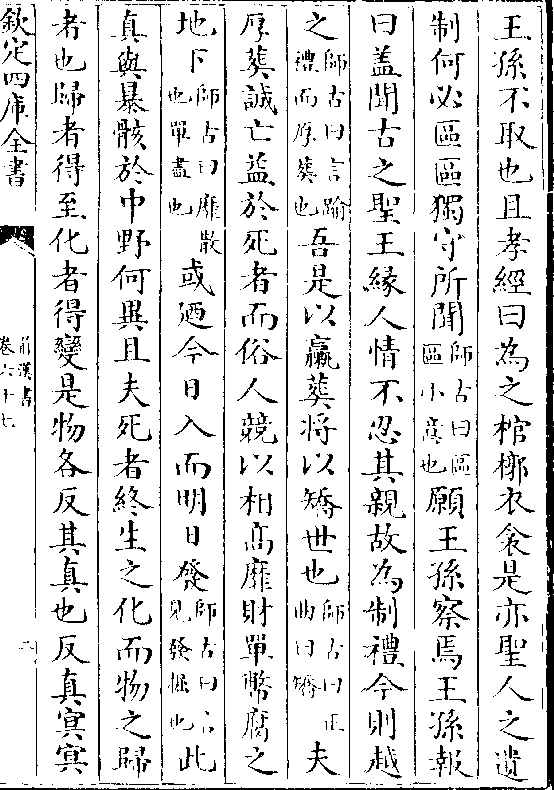 王孫不取也且孝經曰為之棺槨衣衾是亦聖人之遺
制何必區區獨守所聞師古曰區區小意也願王孫察焉王孫報
曰盖聞古之聖王緣人情不忍其親故為制禮今則越
之師古曰言踰禮而厚葬也吾是以臝葬将以矯世也師古曰正曲曰矯夫
厚葬誠亡益於死者而俗人競以相高靡財單幣腐之
地下師古曰靡散也單盡也或廼今日入而明日發師古曰言見發掘也此
真與暴骸於中野何異且夫死者終生之化而物之歸
者也歸者得至化者得變是物各反其真也反真冥冥
欽定四庫全書
前漢書
卷六十七